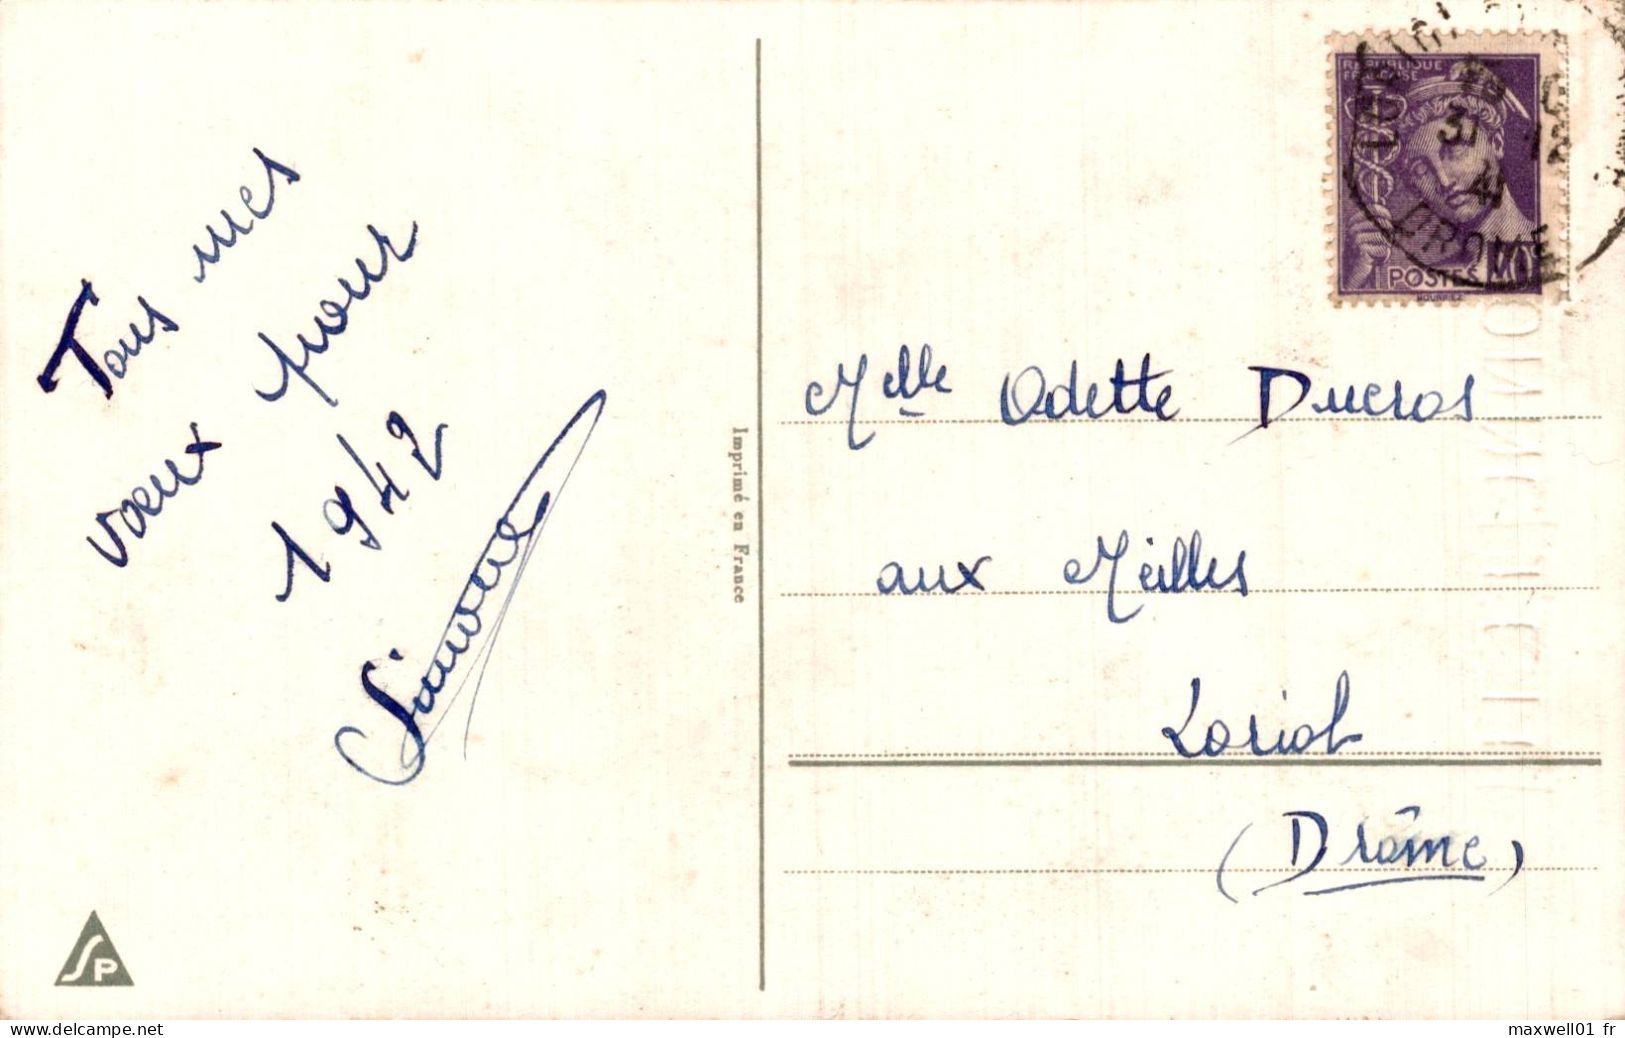 Tous mes
vœux pour
1942
Simone
Imprimé en France
SP
RÉPUBLIQUE
FRANÇAISE
POSTES
MOURRIEZ
31 12
41
DROME
Melle Odette Ducros
aux Meilles
Loriol
(Drôme)
www.delcampe.net
maxwell01 fr